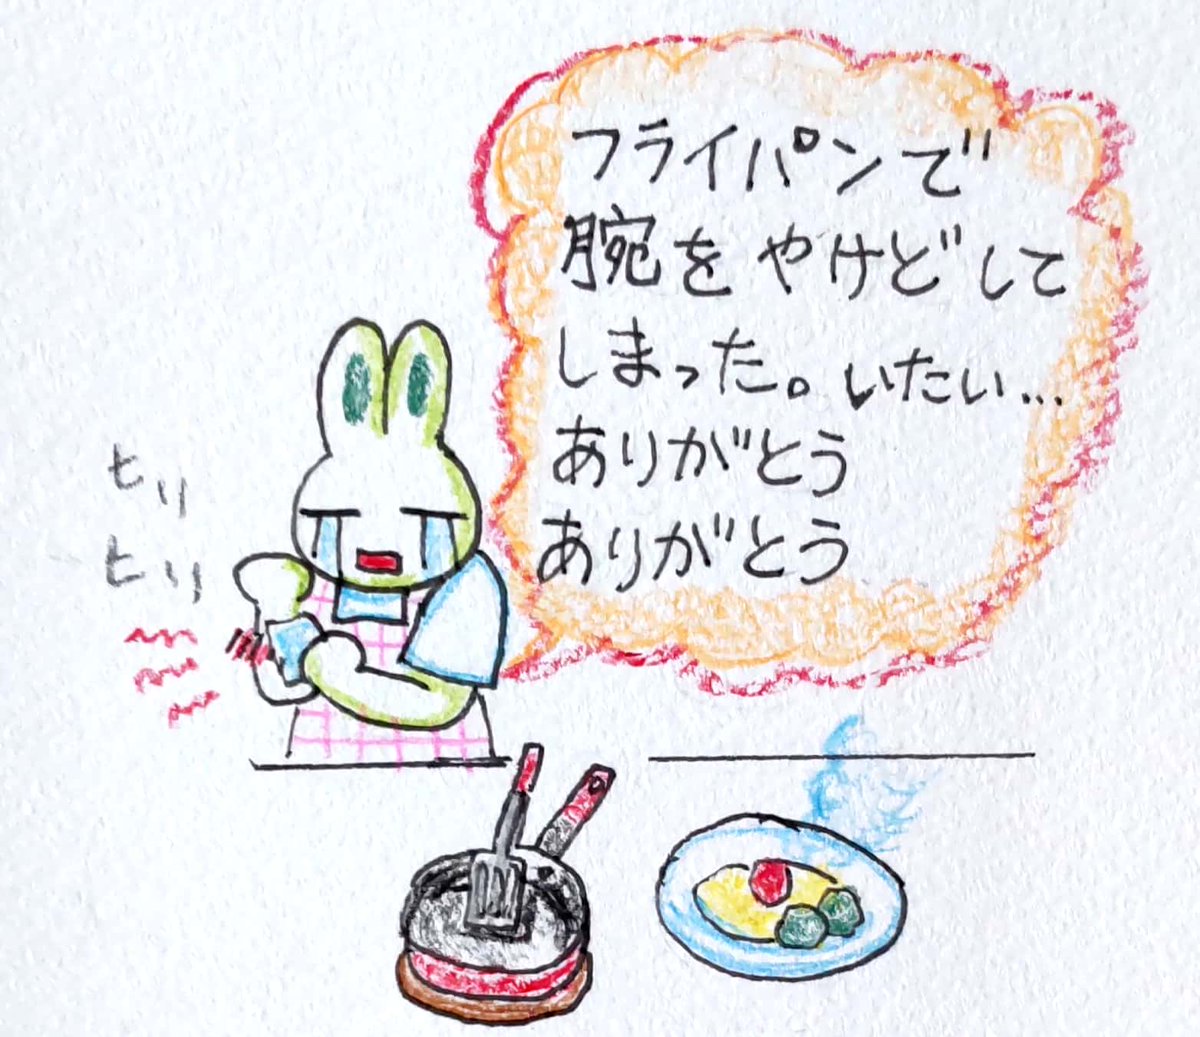 フライパンで
腕をやけどして
しまった。いたい…
ありがとう
ありがとう
ヒリ
ヒリ